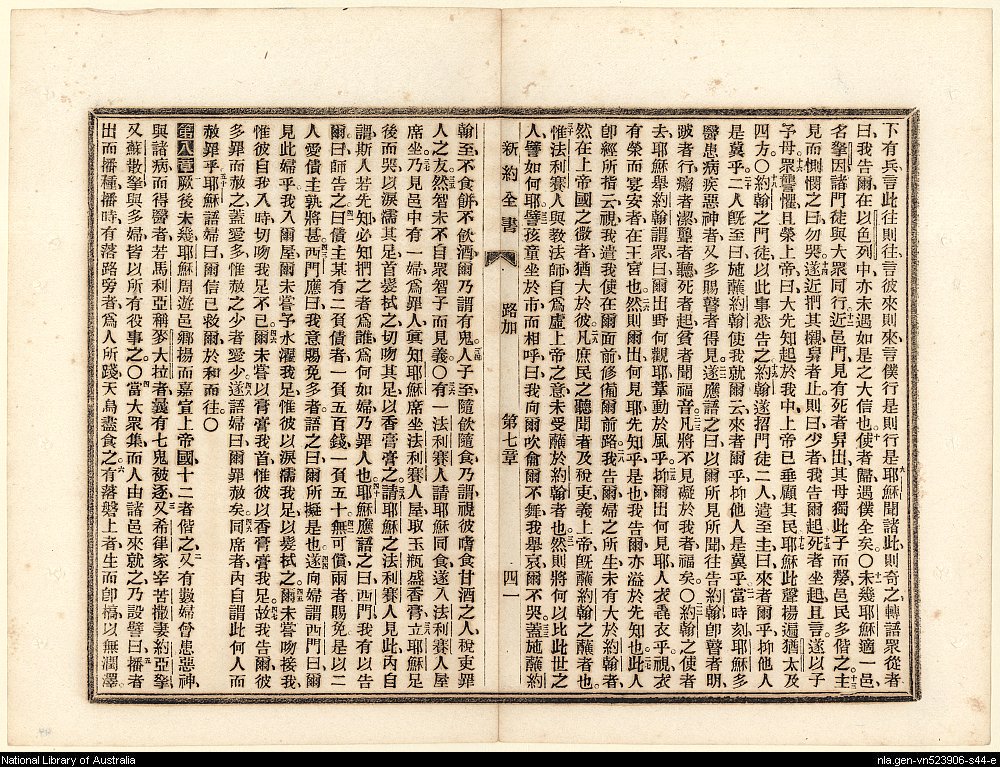 下有兵言此往則往言彼來則來言僕行是則行是耶穌聞諸此則奇之轉語衆從者
曰我告爾在以色列中亦未遇如是之大信也使者歸遇僕全矣〇未幾耶穌適一邑
名拏因諸門徒與大衆同行近邑門見有死者舁出其母獨此子而嫠邑民多偕之主
見而惻憫之曰勿哭遂近捫其櫬舁者止則曰少者我告爾起死者坐起且言遂以子
予母衆讋懼且榮上帝曰大先知起於我中上帝已垂顧其民耶穌此聲揚遍猶太及
四方〇約翰之門徒以此事悉告之約翰遂招門徒二人遣至主曰來者爾乎抑他人
是冀乎二人旣至曰施蘸約翰使我就爾云來者爾乎抑他人是冀乎當時刻耶穌多
醫患病疾惡神者又多賜瞽者得見遂應語之曰以爾所見所聞往告約翰卽瞽者明
跛者行癩者潔聾者聽死者起貧者聞福音凡將不見礙於我者福矣〇約翰之使者
去耶穌舉約翰謂衆曰爾出野何觀耶葦動於風乎抑爾出何見耶人衣毳衣乎視
有榮而宴安者在王宮也然則爾出何見耶先知乎是也我告爾亦溢於先知也此人
卽經所指云視我遣我使在爾面前修備爾前路我告爾婦之所生未有大於約翰者
然在上帝國之微者猶大於彼凡庶民之聽聞者及稅吏義上帝旣蘸約翰之蘸者也
惟法利賽人與教法師自爲虛上帝之意未受蘸於約翰者也然則將何以比此世之
人譬如何耶譬孩童坐於市而相呼曰我向爾吹龠爾不舞我舉哀爾不哭蓋施蘸約
新約全書
路加
第七章
四一
翰至不食餅不飲酒爾乃謂有鬼人子至隨飲隨食乃謂視彼嗜食甘酒之人稅吏罪
人之友然智未不自衆智子而見義〇有一法利賽人請耶穌同食遂入法利賽人屋
席坐乃見邑中有一婦爲罪人冥知耶穌席坐法利賽人屋取玉瓶盛香膏立耶穌足
後而哭以淚濡其足首髮拭之切吻其足以香膏膏之請耶穌之法利賽人見此內自
謂斯人若先知必知捫之者爲誰爲何如婦乃罪人也耶穌應語之曰西門我有以告
爾曰師告之曰債主某有二負債者一負五百錢一負五十無可償兩者賜免是以二
人愛債主孰將甚西門應曰我意賜免多者語之曰爾所擬是也遂向婦謂西門曰爾
見此婦乎我入爾屋爾未嘗予水濯我足惟彼以淚濡我足以髮拭之爾未嘗吻接我
惟彼自我入時切吻我足不已爾未嘗以膏膏我首惟彼以香膏膏我足故我告爾彼
多罪而赦之蓋愛多惟赦之少者愛少遂語婦曰爾罪赦矣同席者內自謂此何人而
赦罪乎耶穌語婦曰爾信已救爾於和而往〇
第八章厥後未幾耶穌周遊邑鄉揚而嘉宣上帝國十二者偕之又有數婦曾患惡神
與諸病而得醫者若馬利亞稱麥大拉者曩有七鬼被逐又希律家宰苦撒妻約亞拏
又蘇散拏與多婦皆以所有役事之〇當大衆集而人由諸邑來就之乃設譬曰播者
出而播種播時有落路旁者爲人所踐天鳥盡食之有落磐上者生而卽槁以無潤澤
National Library of Australia
nla.gen-vn523906-s44-e